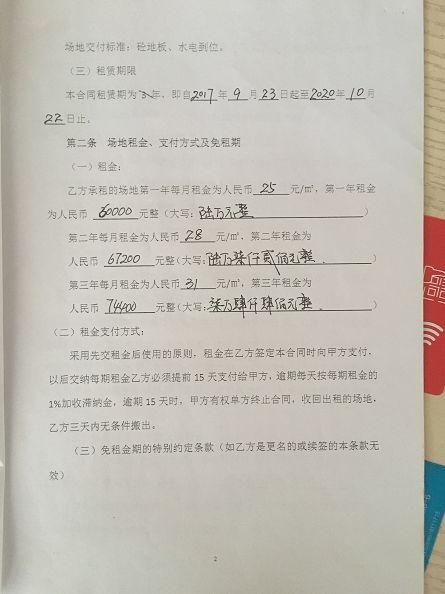 场地交付标准：砼地板、水电到位。
（三）租赁期限
本合同租赁期为3年，即自2017年9月23日起至2020年10月
22日止。
第二条 场地租金、支付方式及免租期
（一）租金：
乙方承租的场地第一年每月租金为人民币 25 元/㎡，第一年租金
为人民币 60000 元整（大写：陆万元整）
第二年每月租金为人民币 28 元/㎡，第二年租金为
人民币 67200 元整（大写：陆万柒仟贰佰元整）
第三年每月租金为人民币 31 元/㎡，第三年租金为
人民币 74400 元整（大写：柒万肆仟肆佰元整）
（二）租金支付方式：
采用先交租金后使用的原则，租金在乙方签定本合同时向甲方支付，
以后交纳每期租金乙方必须提前 15 天支付给甲方，逾期每天按每期租金的
1%加收滞纳金，逾期 15 天时，甲方有权单方终止合同，收回出租的场地，
乙方三天内无条件搬出。
（三）免租金期的特别约定条款（如乙方是更名的或续签的本条款无
效）
2